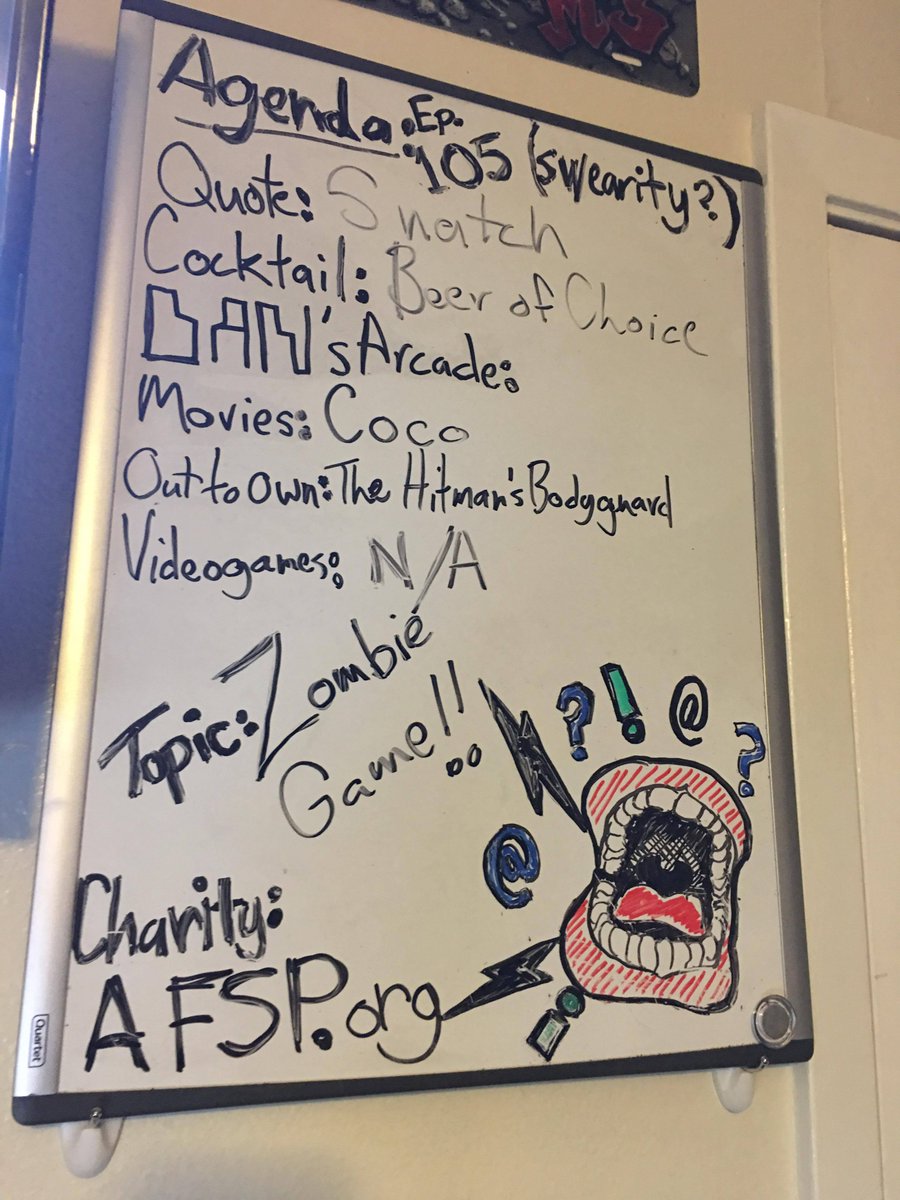 MS
Agenda: Ep. 105 (swearity?)
Quote: Snatch
Cocktail: Beer of Choice
DAN's Arcade:
Movies: Coco
Out to Own: The Hitman's Bodyguard
Videogames: N/A
Topic: Zombie
Game!!
? ! @ ?
@
!
Charity:
AFSP.org
Quartet